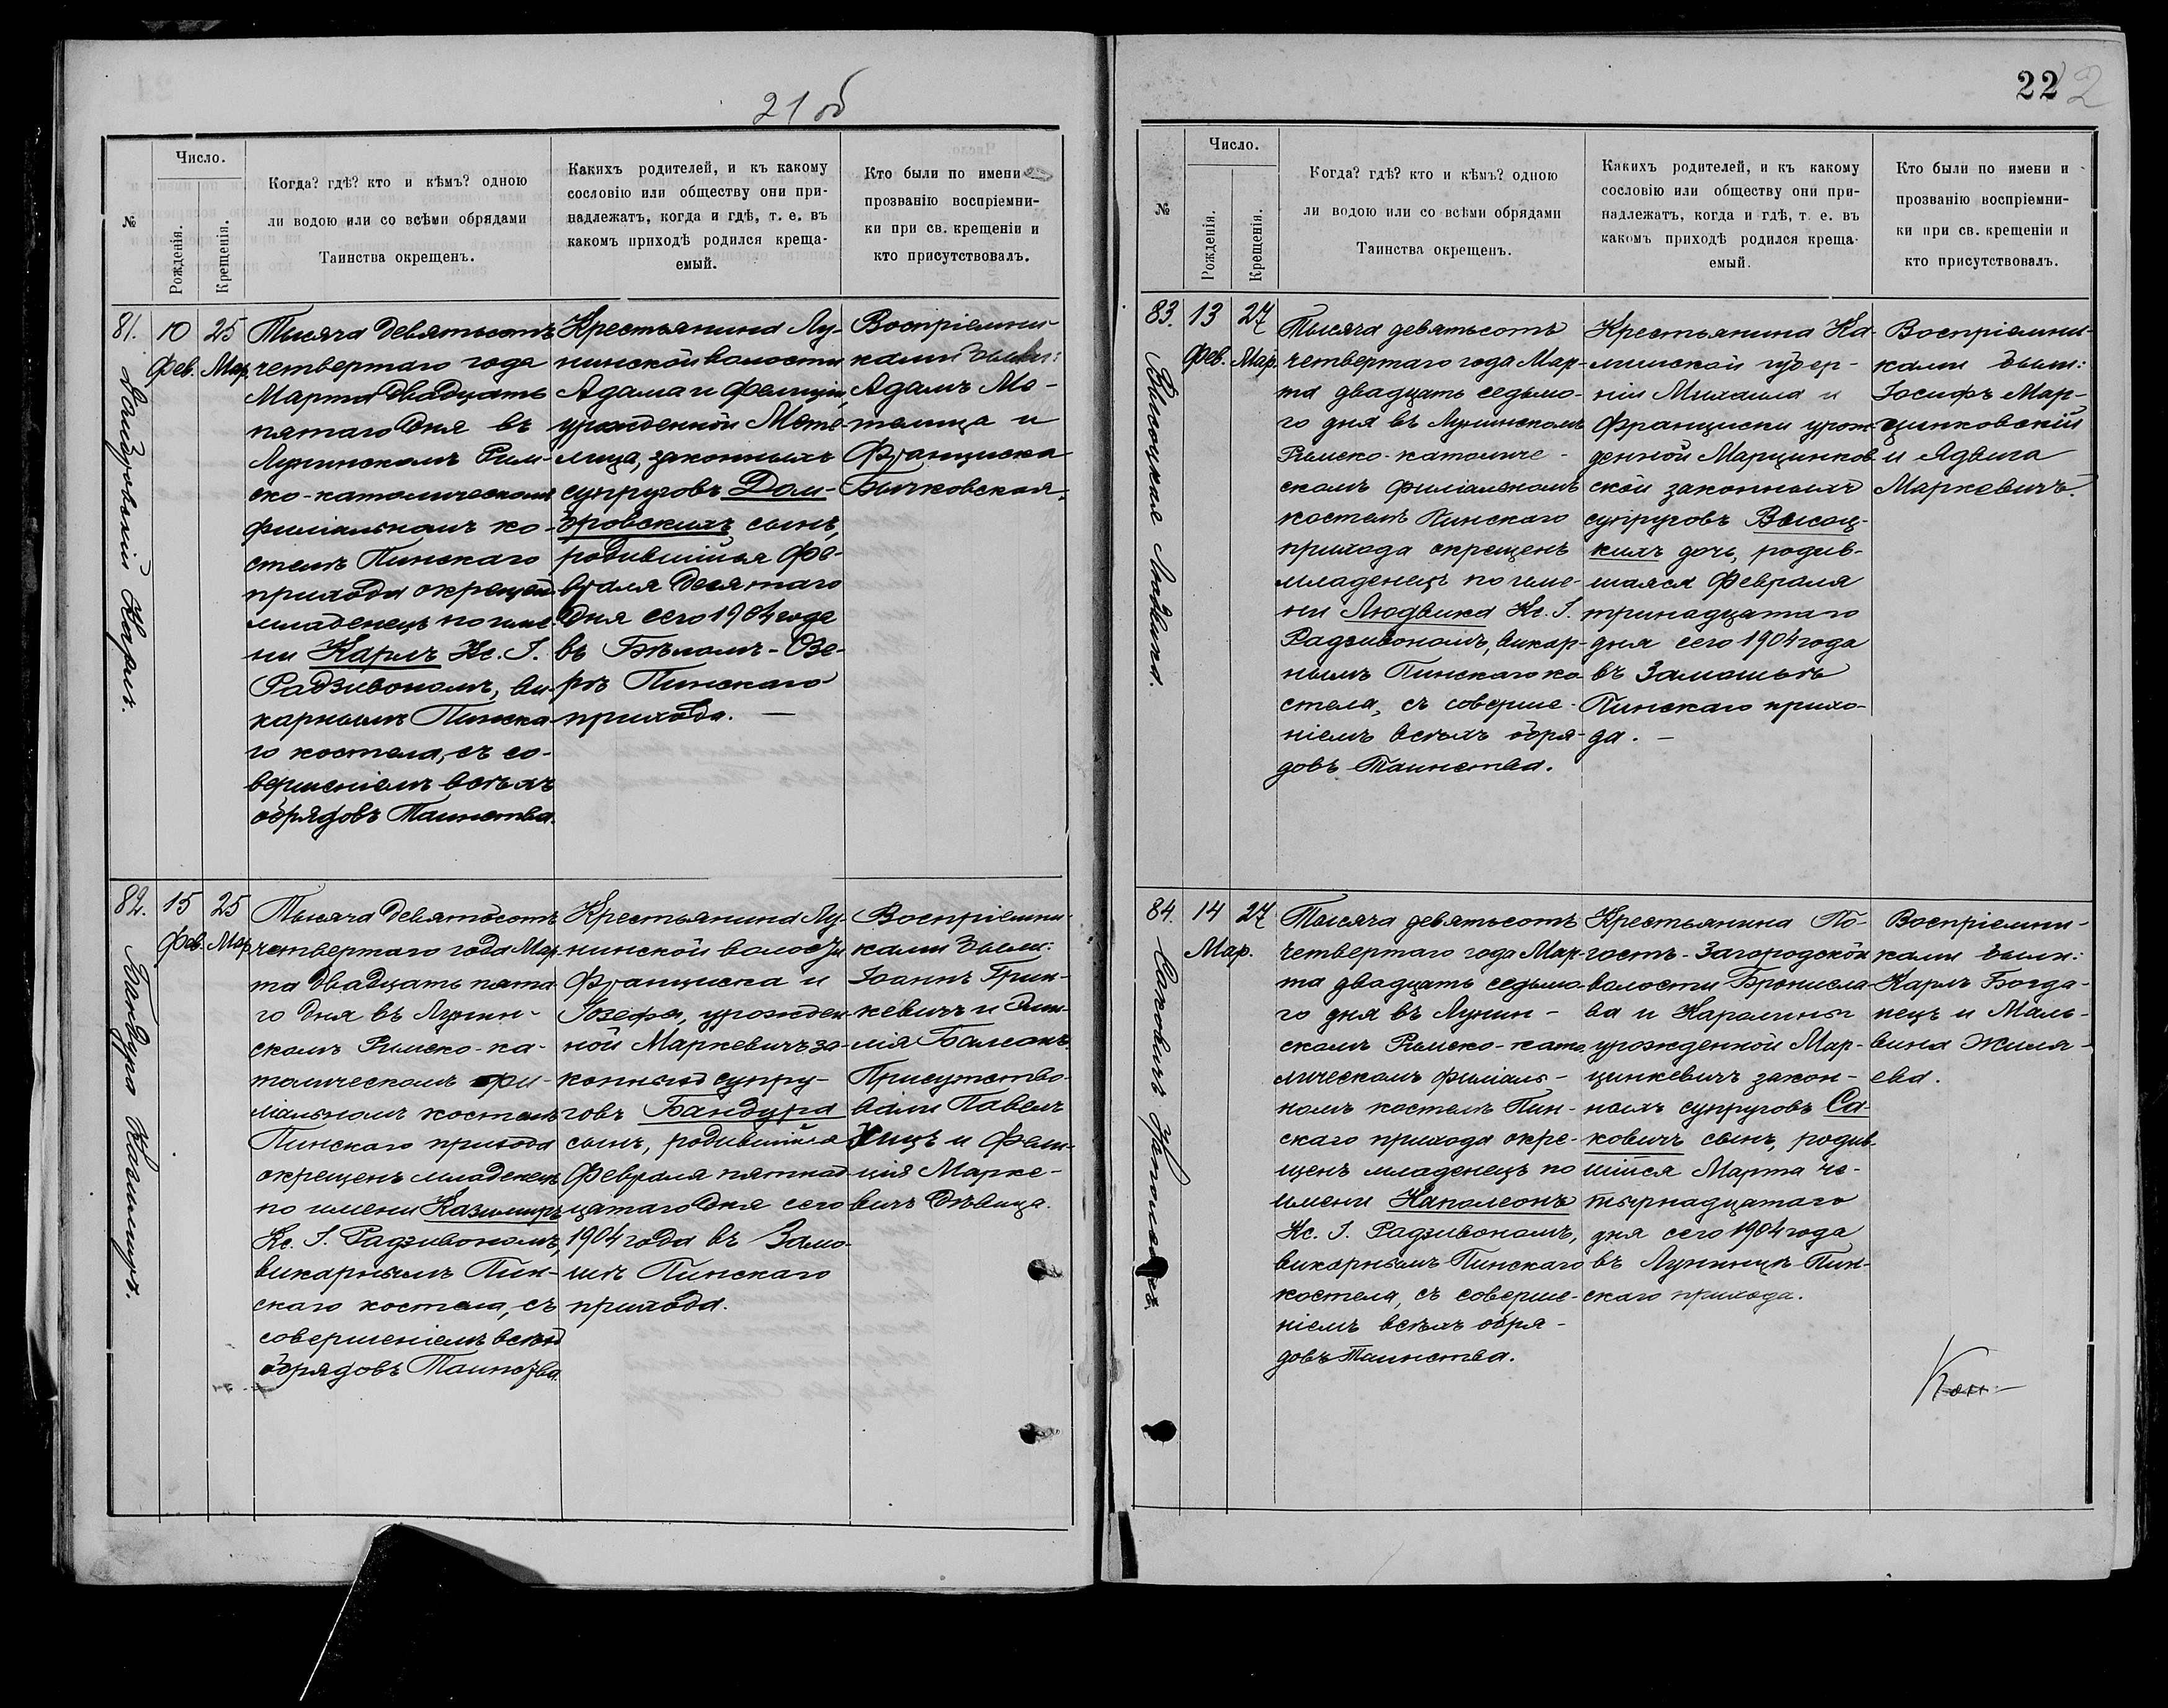 21 об
№
Число.
Рожденія.
Крещенія.
Когда? гдѣ? кто и кѣмъ? одною
ли водою или со всѣми обрядами
Таинства окрещенъ.
Какихъ родителей, и къ какому
сословію или обществу они при-
надлежатъ, когда и гдѣ, т. е. въ
какомъ приходѣ родился креща-
емый.
Кто были по имени
прозванію воспріемни-
ки при св. крещеніи и
кто присутствовалъ.
81.
Карлъ.
10
Фев.
25
Мар.
Тысяча девятьсотъ
четвертаго года
Марта двадцать
пятаго дня въ
Лунинскомъ Рим-
ско-католическомъ
филіальномъ ко-
стелѣ Пинскаго
прихода окрещенъ
младенецъ по име-
ни Карлъ Кс. І.
Радзивономъ, ви-
карнымъ Пинска-
го костела, съ со-
вершеніемъ всѣхъ
обрядовъ Таинства.
Крестьянина Лу-
нинской волости
Адама и Фелиціи,
урожденной Мете-
лица, законныхъ
супруговъ Дом-
бровскихъ сынъ,
родившійся Фе-
враля десятаго
дня сего 1904 года
въ Бѣломъ-Озе-
рѣ Пинскаго
прихода. —
Воспріемни-
ками были:
Адамъ Ме-
телица и
Франциска
Бычковская.
82.
Бандура Казимиръ.
15
Фев.
25
Мар.
Тысяча девятьсотъ
четвертаго года Мар-
та двадцать пята-
го дня въ Лунин-
скомъ Римско-ка-
толическомъ фи-
ліальномъ костелѣ
Пинскаго прихода
окрещенъ младенецъ
по имени Казимиръ
Кс. І. Радзивономъ,
викарнымъ Пин-
скаго костела, съ
совершеніемъ всѣхъ
обрядовъ Таинства.
Крестьянина Лу-
нинской волости
Франциска и
Іозефы, урожден-
ной Маркевичъ за-
конныхъ супру-
говъ Бандура
сынъ, родившійся
Февраля пятнад-
цатаго дня сего
1904 года въ Замо-
шьѣ Пинскаго
прихода.
Воспріемни-
ками были:
Іоаннъ Грин-
кевичъ и Эми-
лія
Присутство-
вали Павелъ
и Фели-
ція Марке-
вичъ дѣвица.
22
2
№
Число.
Рожденія.
Крещенія.
Когда? гдѣ? кто и кѣмъ? одною
ли водою или со всѣми обрядами
Таинства окрещенъ.
Какихъ родителей, и къ какому
сословію или обществу они при-
надлежатъ, когда и гдѣ, т. е. въ
какомъ приходѣ родился креща-
емый.
Кто были по имени и
прозванію воспріемни-
ки при св. крещеніи и
кто присутствовалъ.
83.
Высоцкая Людвика.
13
Фев.
27
Мар.
Тысяча девятьсотъ
четвертаго года Мар-
та двадцать седьмо-
го дня въ Лунинскомъ
Римско-католиче-
скомъ филіальномъ
костелѣ Пинскаго
прихода окрещенъ
младенецъ по име-
ни Людвика Кс. І.
Радзивономъ, викар-
нымъ Пинскаго ко-
стела, съ соверше-
ніемъ всѣхъ обря-
довъ Таинства.
Крестьянина Ка-
лишской губер-
ніи Михаила и
Франциски урож-
денной Марцинков-
ской законныхъ
супруговъ Высоц-
кихъ дочь, родив-
шаяся Февраля
тринадцатаго
дня сего 1904 года
въ Замошьѣ
Пинскаго прихо-
да. —
Воспріемни-
ками были:
Іосифъ Мар-
цинковскій
и Ядвига
Маркевичъ.
84.
Саковичъ Наполеонъ.
14
Мар.
27
Тысяча девятьсотъ
четвертаго года Мар-
та двадцать седьмо-
го дня въ Лунин-
скомъ Римско-като-
лическомъ филіаль-
номъ костелѣ Пин-
скаго прихода окре-
щенъ младенецъ по
имени Наполеонъ
Кс. І. Радзивономъ,
викарнымъ Пинскаго
костела, съ соверше-
ніемъ всѣхъ обря-
довъ Таинства.
Крестьянина По-
гостъ-Загородской
волости Бронисла-
ва и Каролины
урожденной Мар-
цинкевичъ закон-
ныхъ супруговъ Са-
ковичъ сынъ, родив-
шійся Марта че-
тырнадцатаго
дня сего 1904 года
въ Лунинцѣ Пин-
скаго прихода.
Воспріемни-
ками были:
Карлъ Богда-
нецъ и Маль-
вина Жиля-
ева.